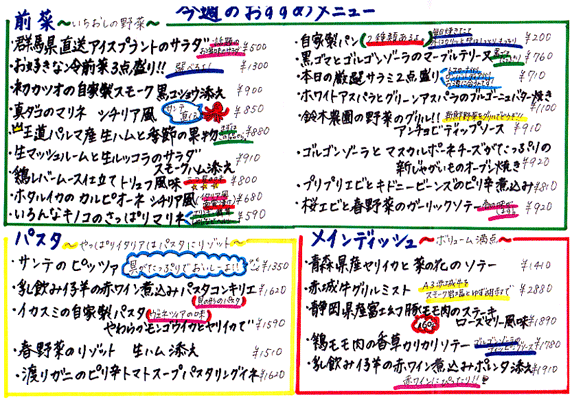 今週のおすすめメニュー
前菜 ～いちおしの野菜～
・群馬県直送アイスプラントのサラダ ¥500
・お好きな冷前菜3点盛り!! 選べるよ! ¥1300
・ネカツオの自家製スモーク 黒コショウ添え ¥900
・真ダコのマリネ シチリア風 ¥850
・王道パルマ産生ハムと季節の果物 ¥880
・生マッシュルームと生ルッコラのサラダ ¥910
スモークハム添え
・鶏レバームース仕立て トリュフ風味 ¥800
・ホタルイカのカルピオーネ シチリア風 ¥680
・いろんなキノコのさっぱりマリネ ¥590
・自家製パン 2種類あるよ ¥200
・黒ゴマとゴルゴンゾーラのマーブルテリーヌ ¥760
・本日の厳選サラミ2点盛り ¥710
・ホワイトアスパラとグリーンアスパラのゴルゴンゾーラバター焼き
¥1100
・鈴木農園の野菜のグリル!!
アンチョビディップソース ¥910
・ゴルゴンゾーラとマスカルポーネチーズがたっぷりの
新じゃがいものオーブン焼き ¥920
・プリプリエビとキドニービーンズのピリ辛煮込み ¥810
・桜エビと春野菜のガーリックソテー ¥920
パスタ ～やっぱりイタリアはパスタにリゾット～
・サンテのピッツァ 具がたっぷりでおいしーよ!! ¥1350
・乳飲み仔羊の赤ワイン煮込みパスタコンキリエ ¥1620
貝の形のパスタ
・イカスミの自家製パスタ ヴェネツィアの味
やわらかモンゴウイカとヤリイカで ¥1590
・春野菜のリゾット 生ハム添え ¥1510
・渡りガニのピリ辛トマトスープパスタリングイネ ¥1620
メインディッシュ ～ボリューム満点～
・青森県産ヤリイカと菜の花のソテー ¥1410
・赤城牛グリルミスト ¥2880
・静岡県産富士幻豚モモ肉のステーキ
160g ローズマリー風味 ¥1890
・鶏モモ肉の香草カリカリソテー ¥1780
・乳飲み仔羊の赤ワイン煮込みポレンタ添え ¥1910
赤ワインにぴったり!!